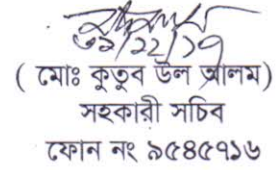 ( মোঃ কুতুব উল আলম)
সহকারী সচিব
ফোন নং ৯৫৪৫৭১৬